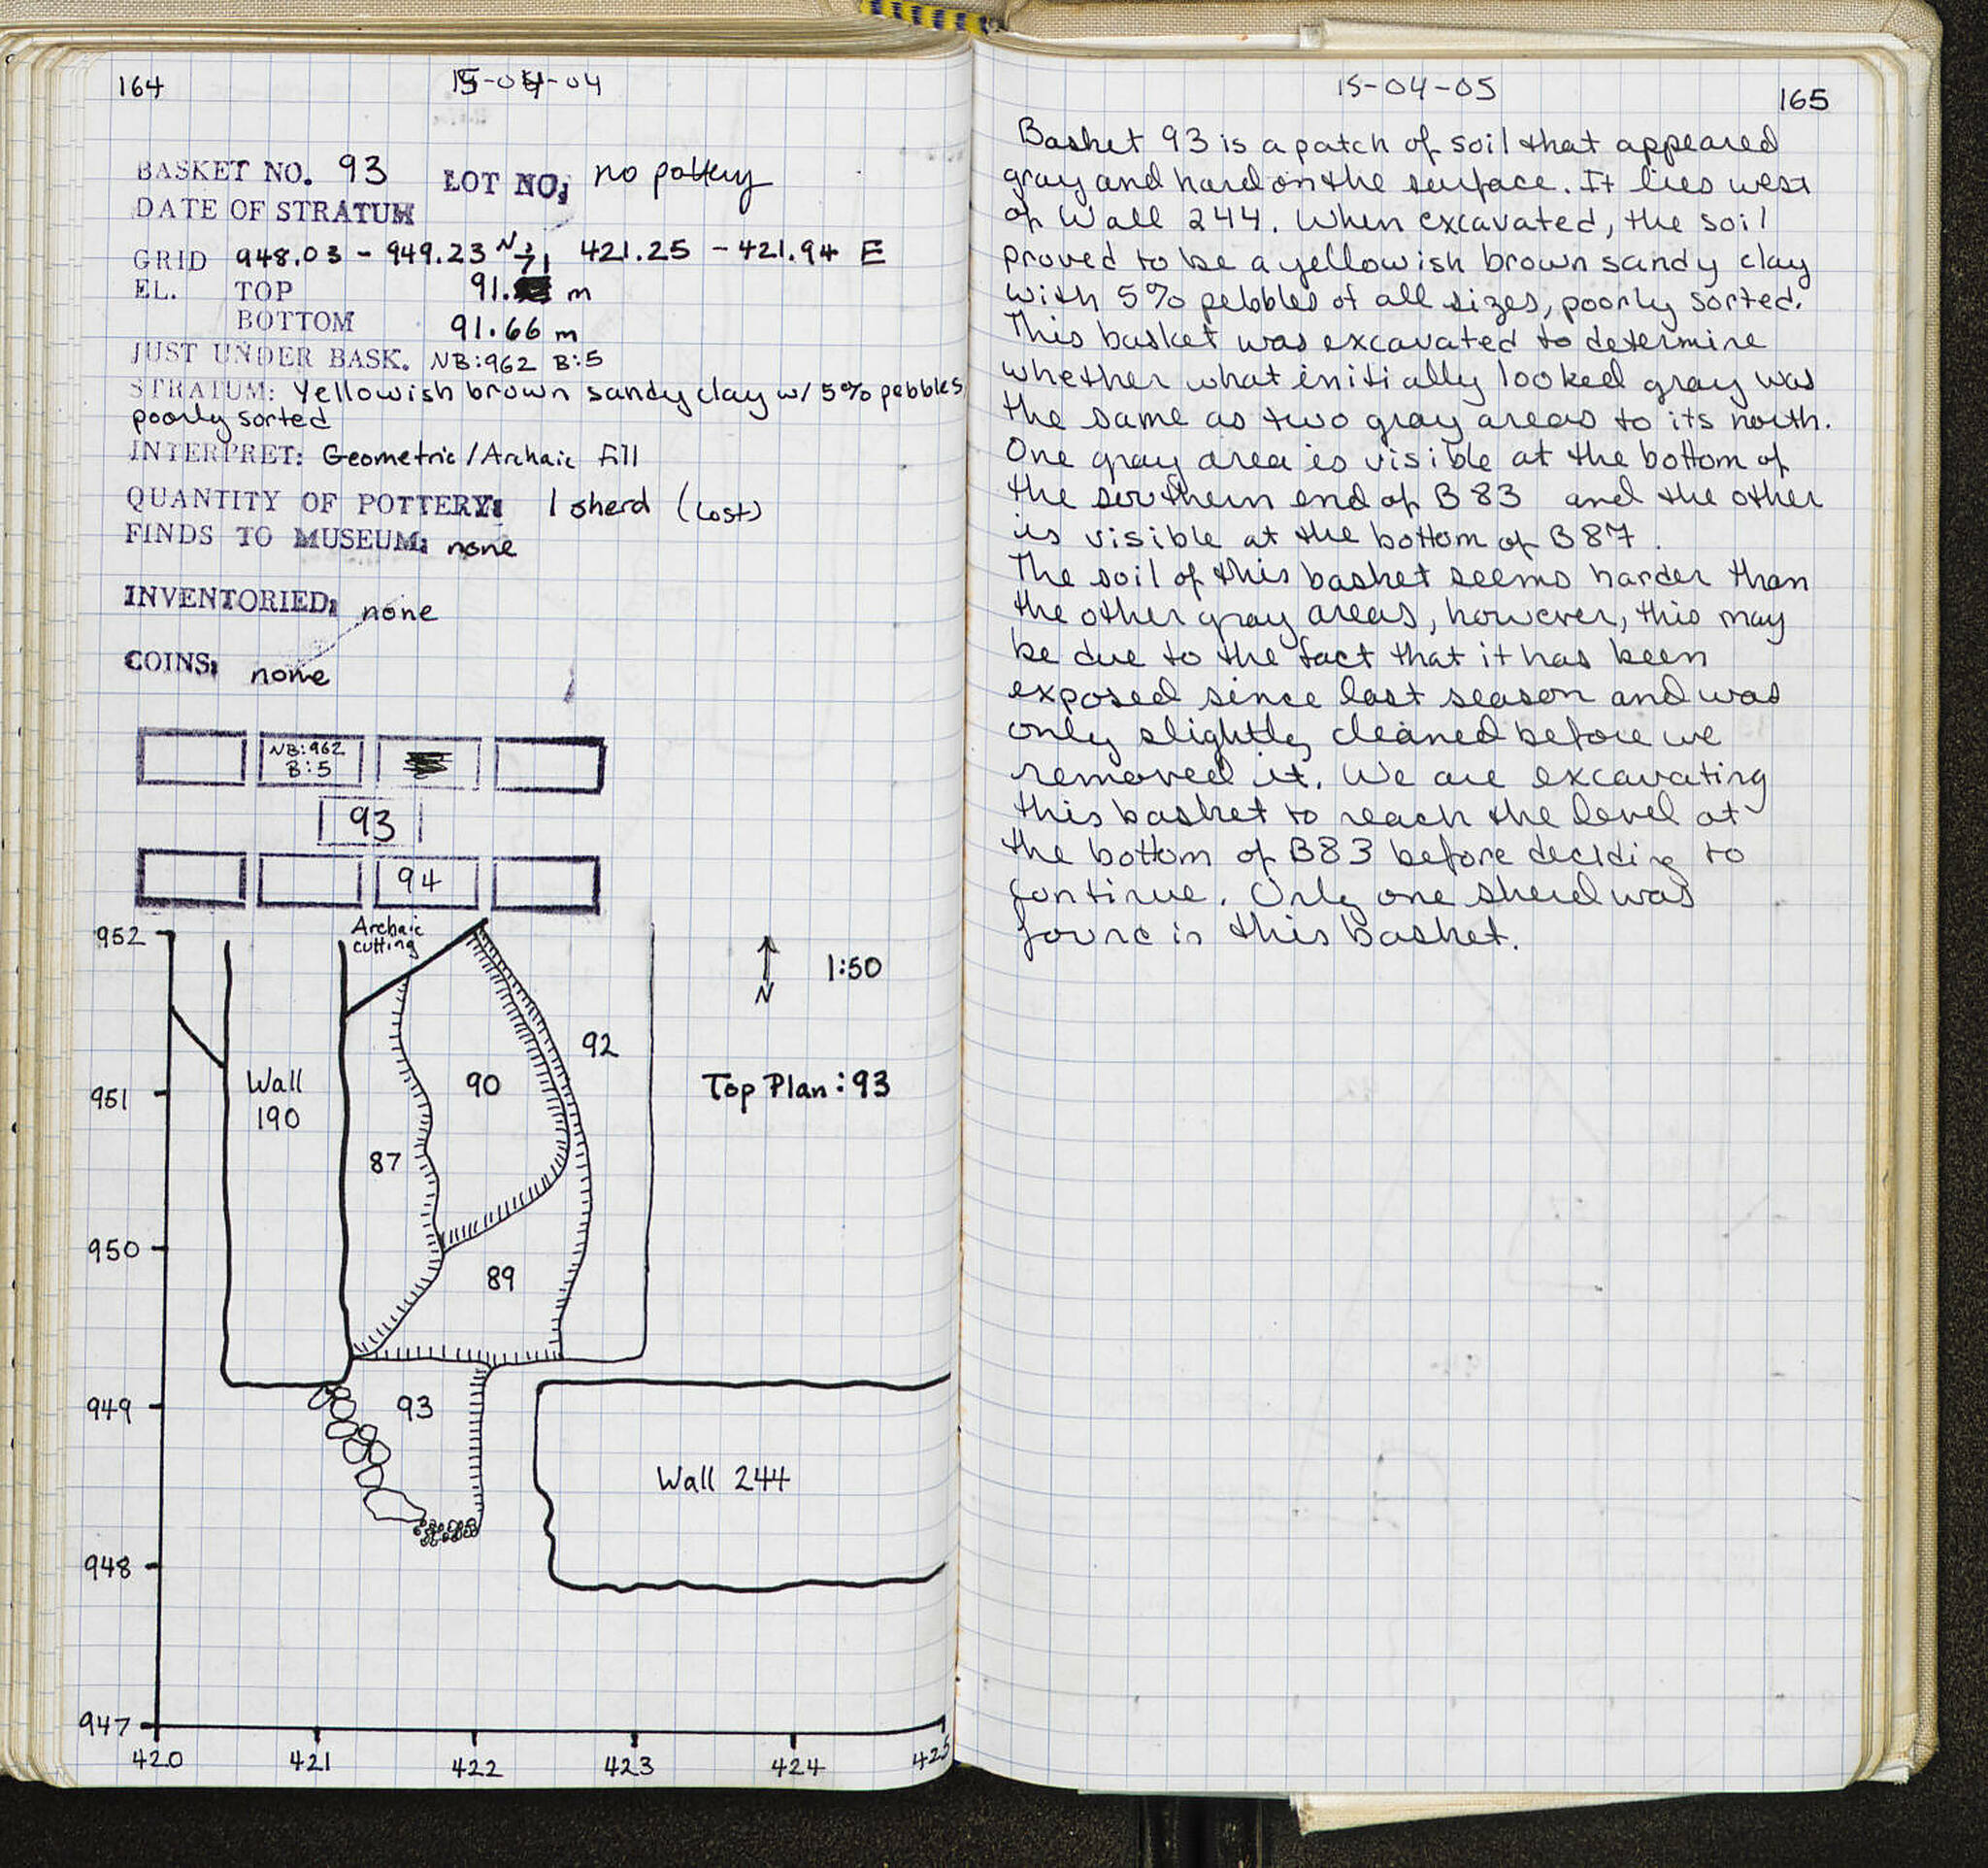 164
15-04-04
BASKET NO. 93 LOT NO: no pottery
DATE OF STRATUM
GRID 948.03 - 949.23 N; 421.25 - 421.94 E
EL. TOP 91. m
BOTTOM 91.66 m
JUST UNDER BASK. NB:962 B:5
STRATUM: Yellowish brown sandy clay w/ 5% pebbles,
poorly sorted
INTERPRET: Geometric/Archaic Fill
QUANTITY OF POTTERY: 1 sherd (lost)
FINDS TO MUSEUM: none
INVENTORIED: none
COINS: none
NB:962
B:5
93
94
952
Archaic
cutting
N
1:50
92
951
Wall
190
90
Top Plan: 93
87
950
89
949
93
Wall 244
948
947
420 421 422 423 424 425
15-04-05
165
Basket 93 is a patch of soil that appeared
gray and hard on the surface. It lies west
of Wall 244. When excavated, the soil
proved to be a yellowish brown sandy clay
with 5% pebbles of all sizes, poorly sorted.
This basket was excavated to determine
whether what initially looked gray was
the same as two gray areas to its north.
One gray area is visible at the bottom of
the southern end of B83 and the other
is visible at the bottom of B87.
The soil of this basket seems harder than
the other gray areas, however, this may
be due to the fact that it has been
exposed since last season and was
only slightly cleaned before we
removed it. We are excavating
this basket to reach the level at
the bottom of B83 before deciding to
continue. Only one sherd was
found in this basket.